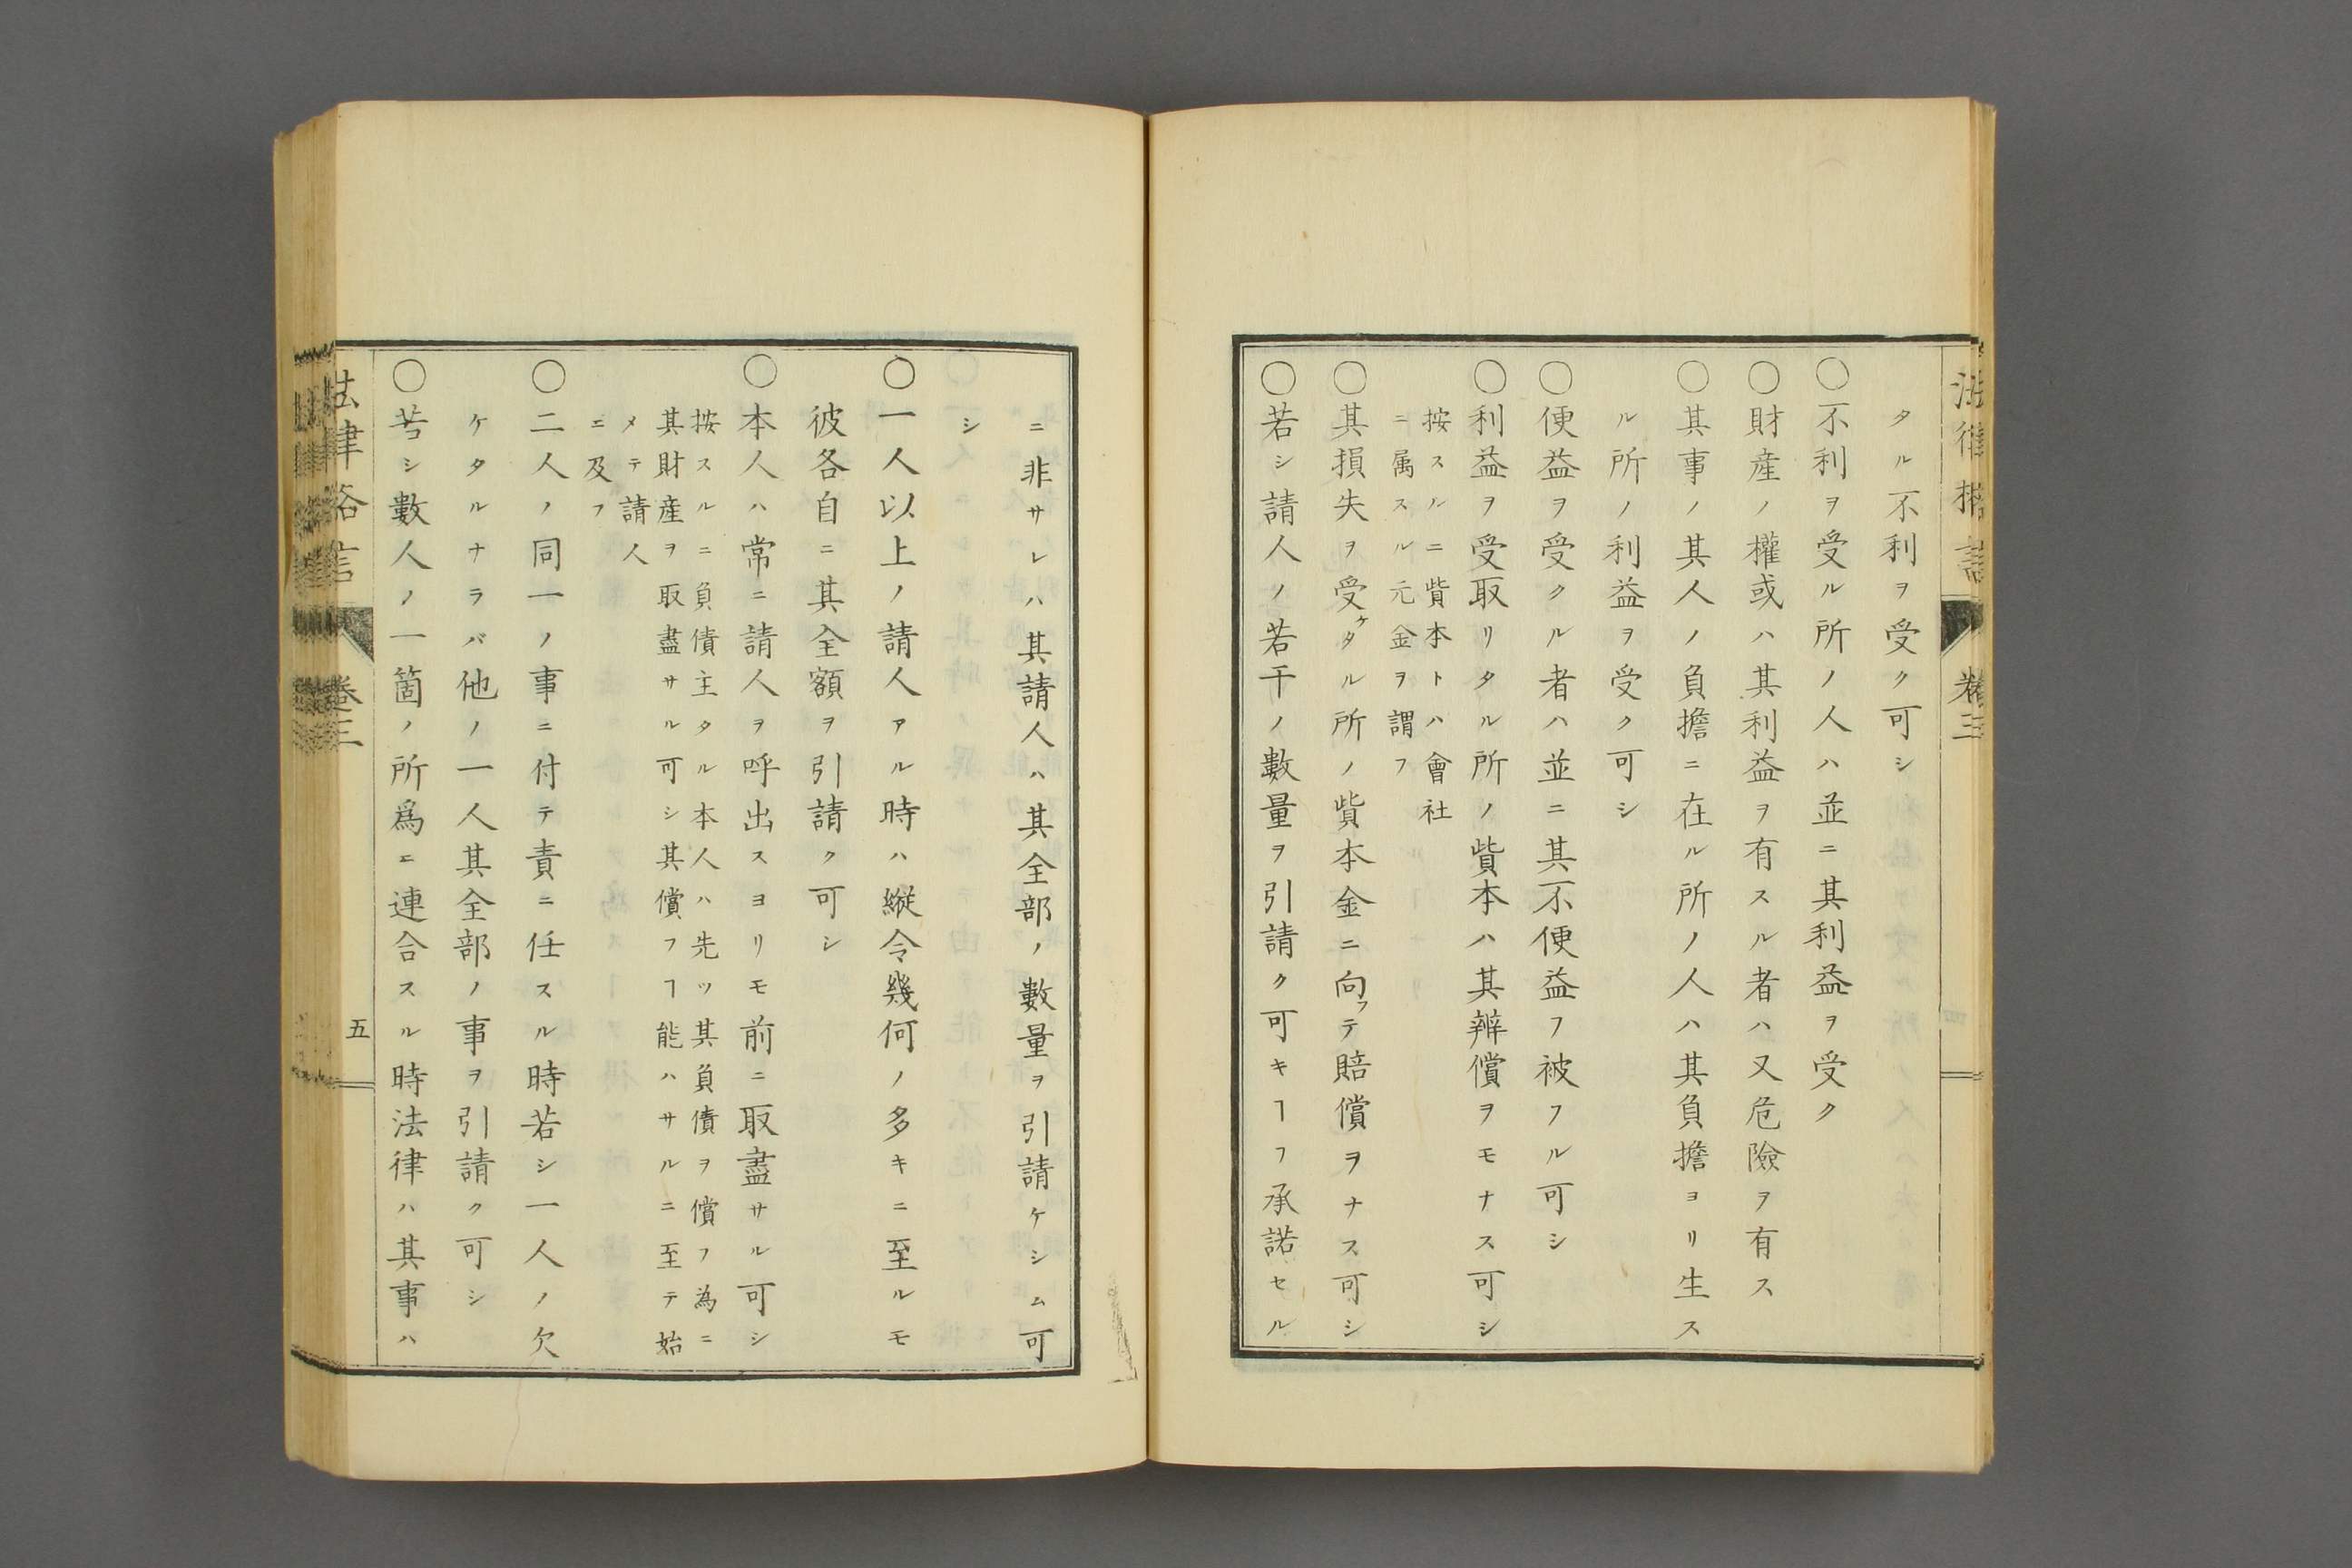 タル不利ヲ受ク可シ
〇不利ヲ受ル所ノ人ハ並ニ其利益ヲ受ク
〇財産ノ權或ハ其利益ヲ有スル者ハ又危險ヲ有ス
〇其事ノ其人ノ負擔ニ在ル所ノ人ハ其負擔ヨリ生ス
ル所ノ利益ヲ受ク可シ
〇便益ヲ受クル者ハ並ニ其不便益ヲ被フル可シ
〇利益ヲ受取リタル所ノ貲本ハ其辨償ヲモナス可シ
按スルニ貲本トハ會社
ニ属スル元金ヲ謂フ
〇其損失ヲ受ケタル所ノ貲本金ニ向フテ賠償ヲナス可シ
〇若シ請人ノ若干ノ數量ヲ引請ク可キヿヲ承諾セル
卷三
ニ非サレハ其請人ハ其全部ノ數量ヲ引請ケシム可
シ
〇一人以上ノ請人アル時ハ縱令幾何ノ多キニ至ルモ
彼各自ニ其全額ヲ引請ク可シ
〇本人ハ常ニ請人ヲ呼出スヨリモ前ニ取盡サル可シ
按スルニ負債主タル本人ハ先ツ其負債ヲ償フ為ニ
其財産ヲ取盡サル可シ其償フヿ能ハサルニ至テ始
メテ請人
ニ及フ
〇二人ノ同一ノ事ニ付テ責ニ任スル時若シ一人ノ欠
ケタルナラバ他ノ一人其全部ノ事ヲ引請ク可シ
〇若シ數人ノ一箇ノ所爲ニ連合スル時法律ハ其事ハ
法律格言
卷三
五